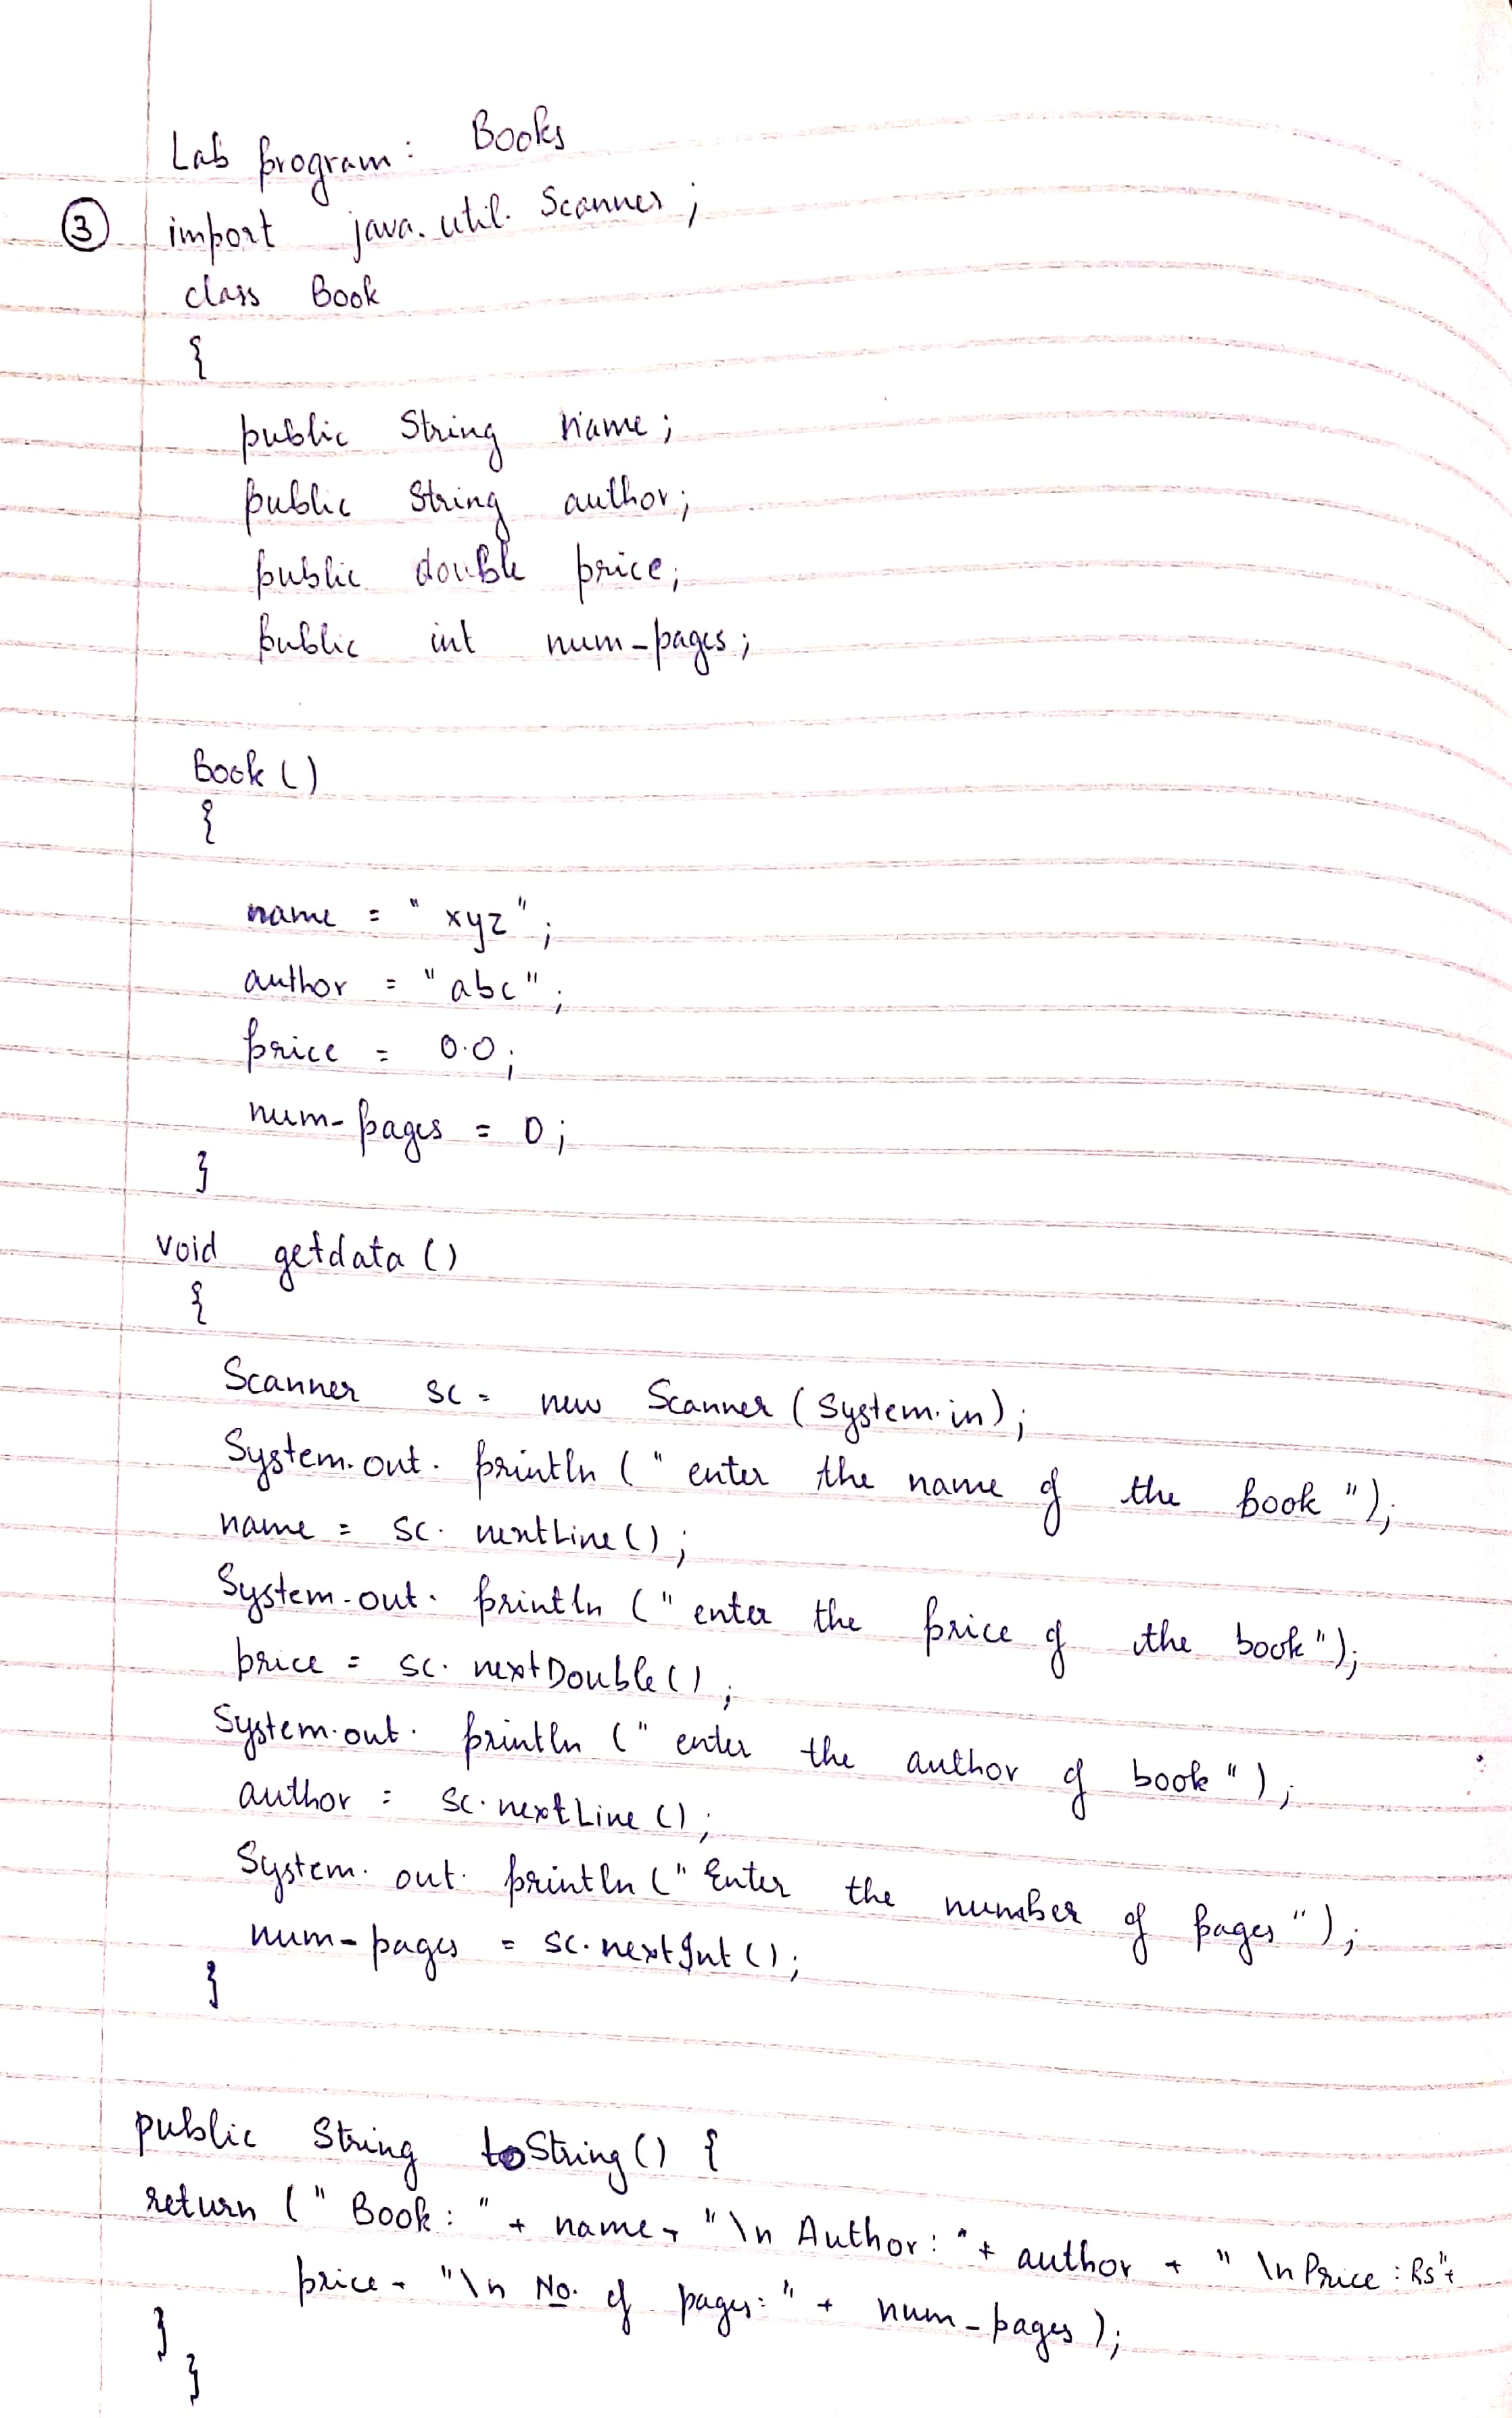 Lab program: Books
③ import java.util.Scanner;
class Book
{
public String name;
public String author;
public double price;
public int num_pages;
Book()
{
name = "xyz";
author = "abc";
price = 0.0;
num_pages = 0;
}
void getdata()
{
Scanner sc = new Scanner(System.in);
System.out.println("enter the name of the book");
name = sc.nextLine();
System.out.println("enter the price of the book");
price = sc.nextDouble();
System.out.println("enter the author of book");
author = sc.nextLine();
System.out.println("Enter the number of pages");
num_pages = sc.nextInt();
}
public String toString() {
return ("Book: " + name + "\n Author: " + author + " \n Price : Rs" +
price + "\n No. of pages: " + num_pages);
}
}